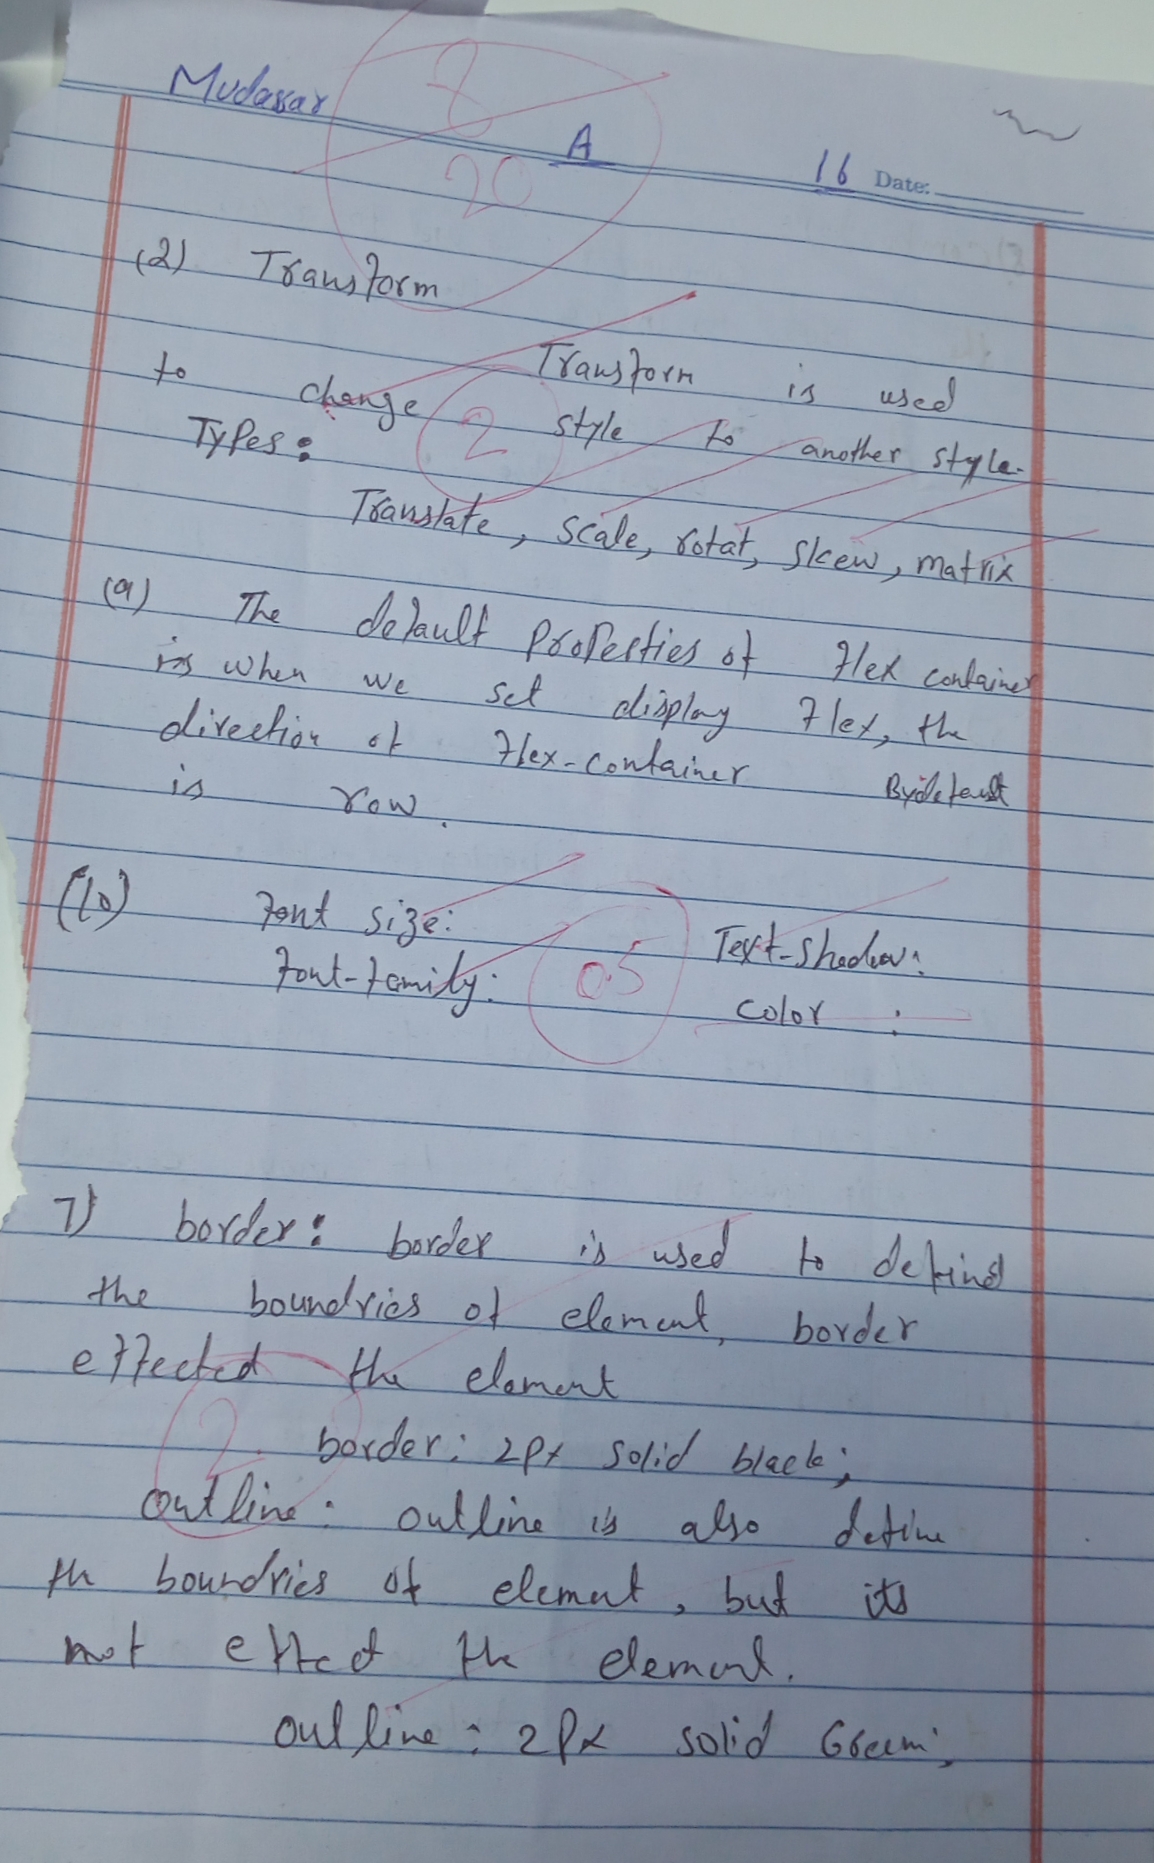 Mudassar
8
20
A
16 Date:
(2) Transform
Transform is used
to change style to another style.
2
Types:
Translate, scale, rotat, skew, matrix
(9) The default properties of flex container
is when we set display flex, the
direction of flex-container Bydefault
is row.
(10) Font size: Text-Shadow:
Font-family: 0.5 color :
7) border: border is used to defind
the boundries of element, border
effected the element
2
border: 2px solid black;
outline: outline is also define
the boundries of element, but its
not effect the element.
outline: 2px solid Green;